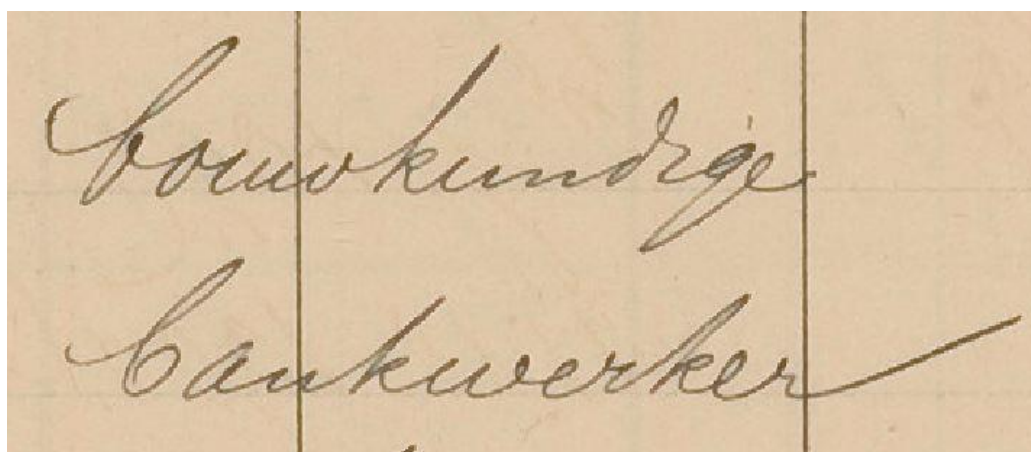 bouwkundige
bankwerker